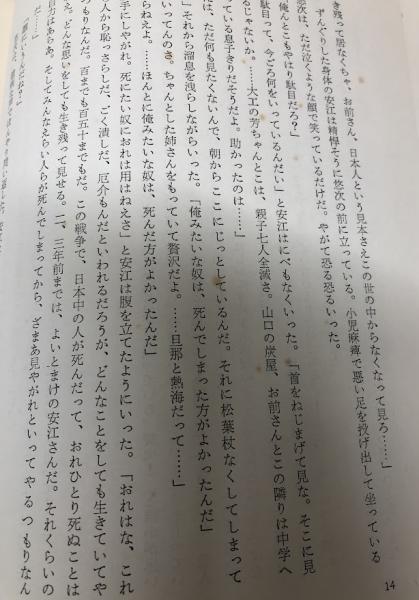 き残って居なくちゃ、お前さん、日本人という見本さえこの世の中からなくなって見ろ……」
ずんぐりした身体の安江は精悍そうに悠次の前に立っている。小児麻痺で悪い足を投げ出して坐っている
悠次は、ただ泣くような顔で笑っているだけだ。やがて恐る恐るいった。
「俺んとこもやはり駄目だろ？」
駄目って、今ごろ何をいっているんだい」と安江はにべもなくいった。「首をねじまげて見な。そこに見
るじゃないか。……大工の芳ちゃんとこは、親子七人全滅さ。山口の炭屋、お前さんとこの隣りは中学へ
っている息子きりだそうだよ。助かったのは……」
は、ただ何も見たくないんで、朝からここにじっとしているんだ。それに松葉杖なくしてしまって
」それから溜息を洩らしながらいった。「俺みたいな奴は、死んでしまった方がよかったんだ」
いってんのさ。ちゃんとした姉さんをもっていて贅沢だよ。……旦那と熱海だって……」
らねえよ。……ほんとに俺みたいな奴は、死んだ方がよかったんだ」
手にしやがれ。死にたい奴におれは用はねえさ」と安江は腹を立てたようにいった。「おれはな、これ
人から恥っさらしだ、ごく潰しだ、厄介もんだといわれるだろうが、どんなことをしても生きていてや
つもりなんだ。百までも百五十までもだ。この戦争で、日本中の人が死んだって、おれひとり死ぬことは
え。どんな思いをしても生き残って見せる。二、三年前までは、よいとまけの安江さんだ。それくらいの
百方はあらあ。そしてみんなえらい人らが死んでしまってから、ざまあ見やがれといってやるつもりなん
だ……」
14